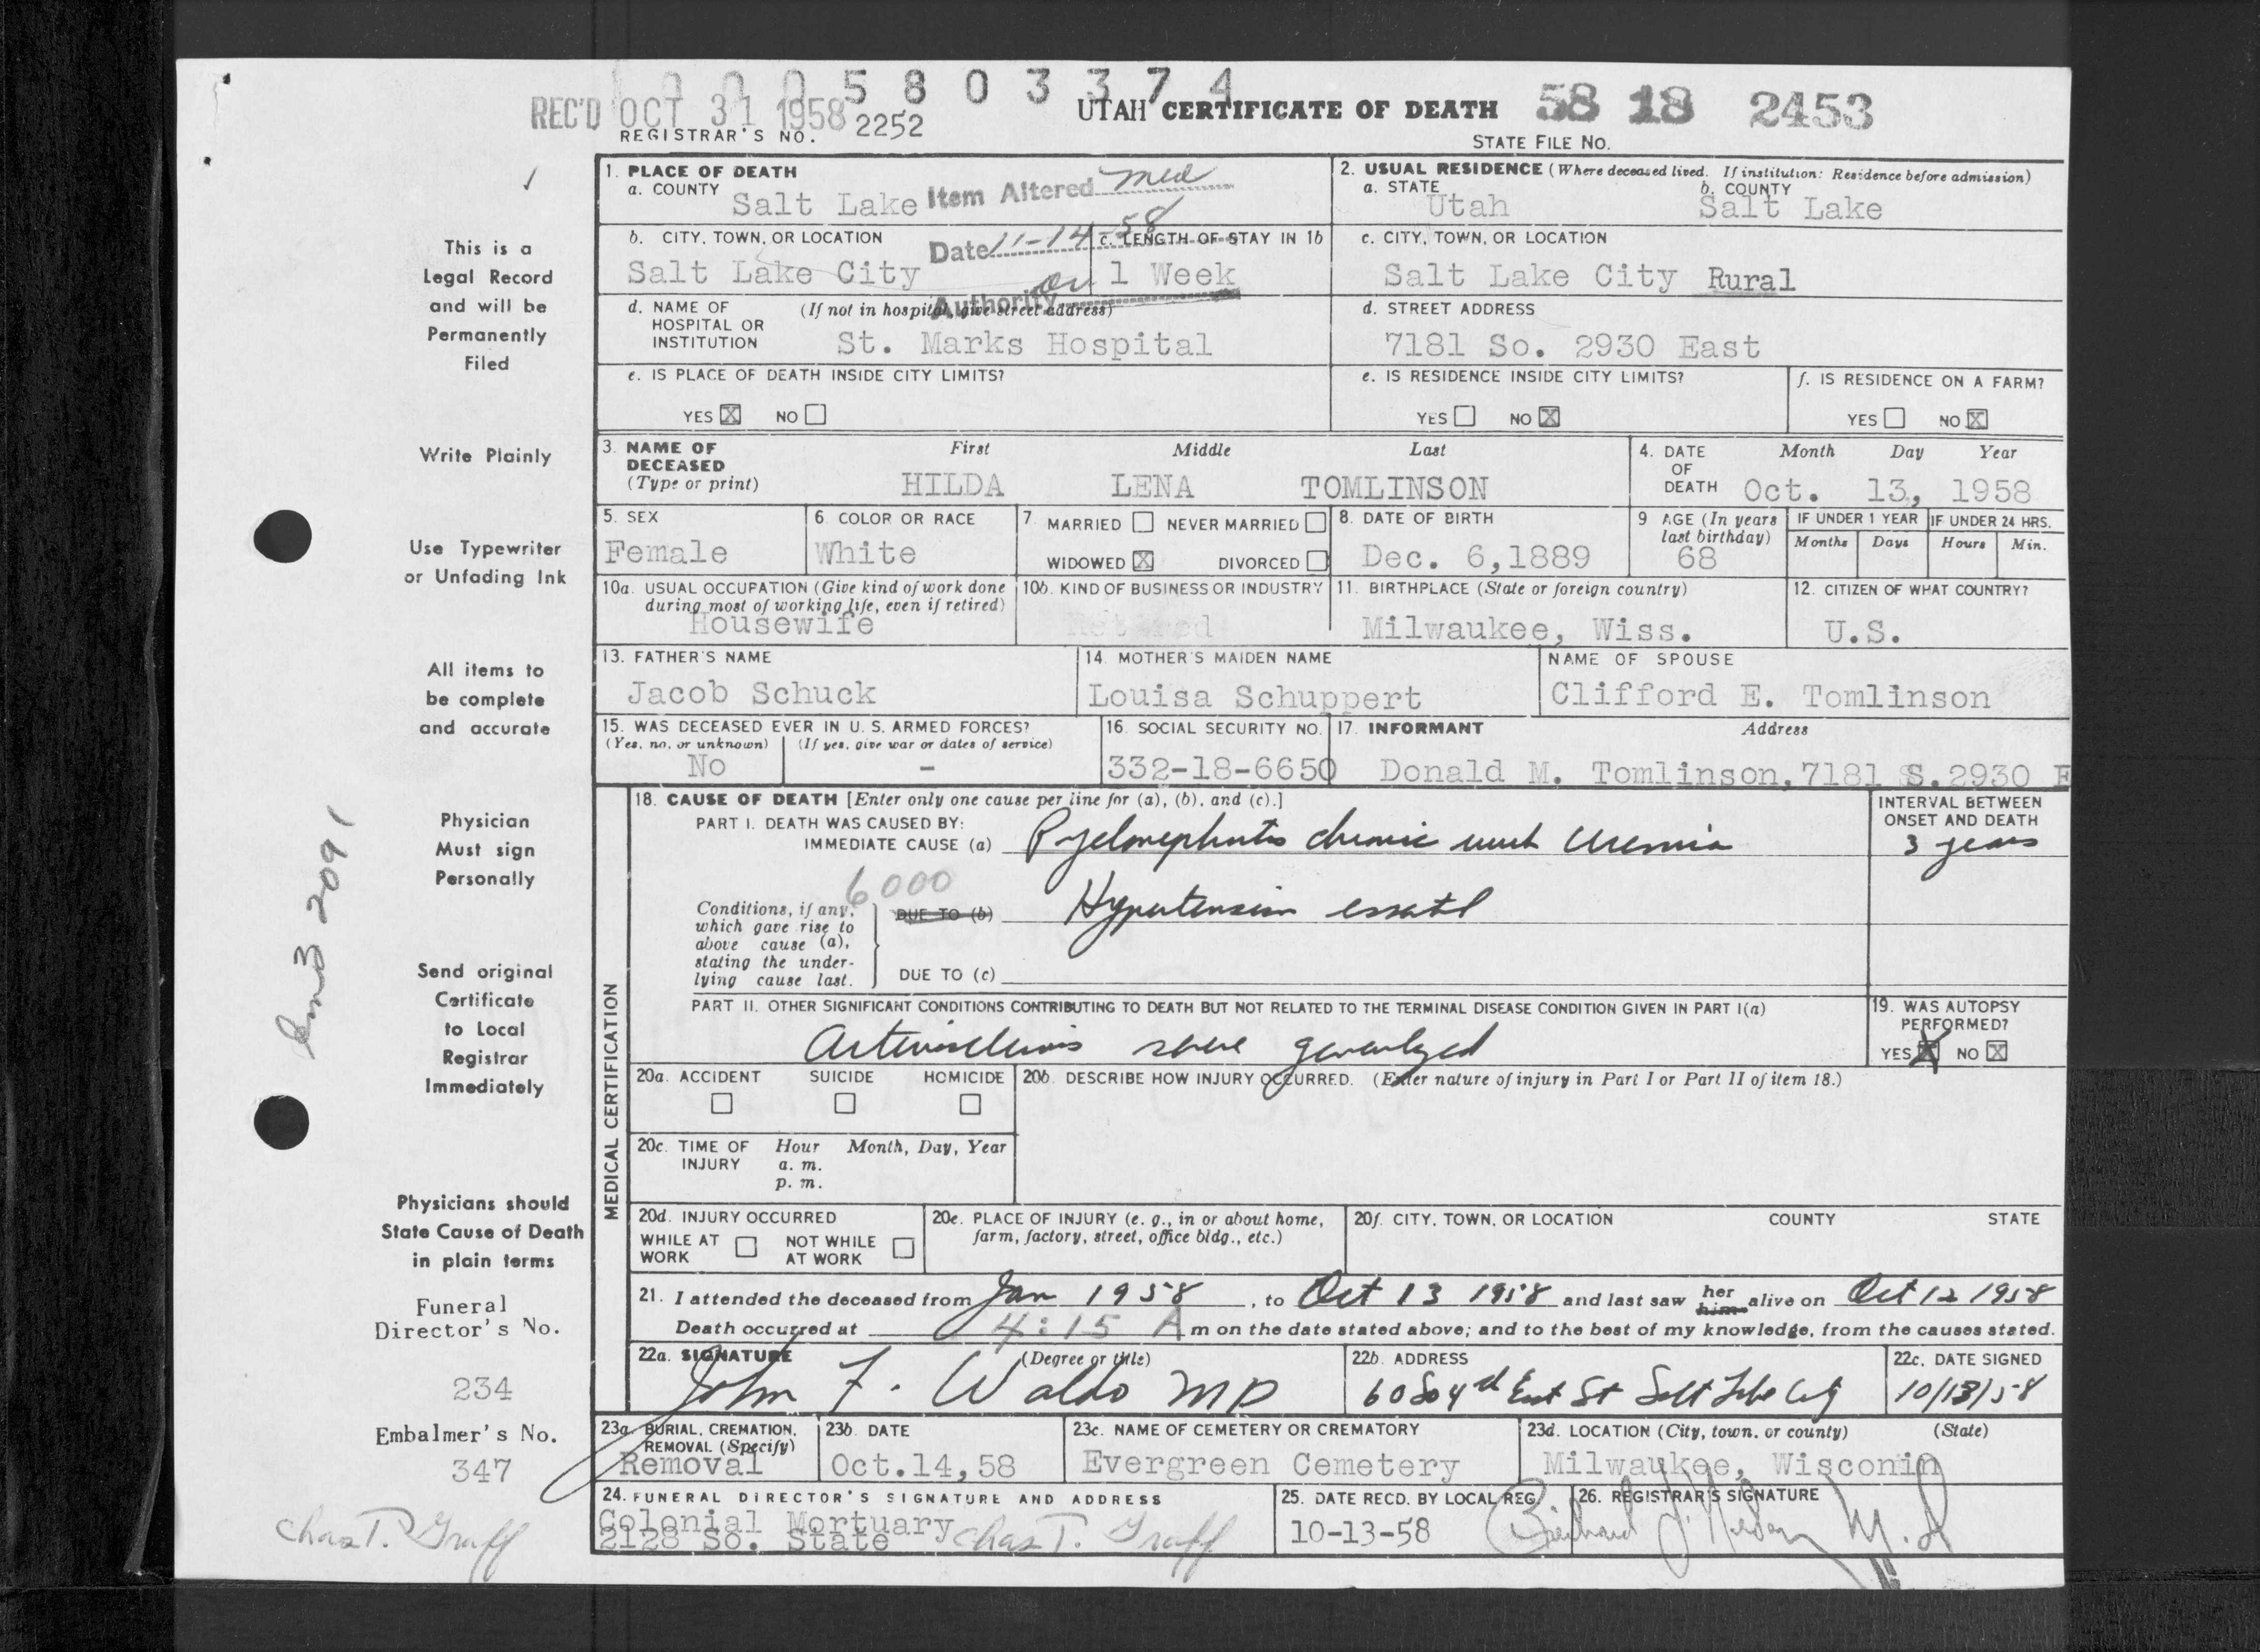 0 0 0 5 8 0 3 3 7 4
REC'D OCT 31 1958
REGISTRAR'S NO. 2252
UTAH CERTIFICATE OF DEATH
58 18 2453
STATE FILE NO.
1. PLACE OF DEATH
a. COUNTY Salt Lake
Item Altered med
Date 11-14-58
Authority
2. USUAL RESIDENCE (Where deceased lived. If institution: Residence before admission)
a. STATE Utah
b. COUNTY Salt Lake
b. CITY, TOWN, OR LOCATION
Salt Lake City
c. LENGTH OF STAY IN 1b
1 Week
c. CITY, TOWN, OR LOCATION
Salt Lake City Rural
d. NAME OF HOSPITAL OR INSTITUTION (If not in hospital, give street address)
St. Marks Hospital
d. STREET ADDRESS
7181 So. 2930 East
e. IS PLACE OF DEATH INSIDE CITY LIMITS?
YES X NO
e. IS RESIDENCE INSIDE CITY LIMITS?
YES NO X
f. IS RESIDENCE ON A FARM?
YES NO X
3. NAME OF DECEASED (Type or print)
First Middle Last
HILDA LENA TOMLINSON
4. DATE OF DEATH
Month Day Year
Oct. 13, 1958
5. SEX
Female
6. COLOR OR RACE
White
7. MARRIED NEVER MARRIED
WIDOWED X DIVORCED
8. DATE OF BIRTH
Dec. 6,1889
9 AGE (In years last birthday)
68
IF UNDER 1 YEAR
Months Days
IF UNDER 24 HRS.
Hours Min.
10a. USUAL OCCUPATION (Give kind of work done during most of working life, even if retired)
Housewife
10b. KIND OF BUSINESS OR INDUSTRY
11. BIRTHPLACE (State or foreign country)
Milwaukee, Wiss.
12. CITIZEN OF WHAT COUNTRY?
U.S.
13. FATHER'S NAME
Jacob Schuck
14. MOTHER'S MAIDEN NAME
Louisa Schuppert
NAME OF SPOUSE
Clifford E. Tomlinson
15. WAS DECEASED EVER IN U. S. ARMED FORCES?
(Yes, no, or unknown) (If yes, give war or dates of service)
No -
16. SOCIAL SECURITY NO.
332-18-6650
17. INFORMANT Address
Donald M. Tomlinson, 7181 S. 2930 E
MEDICAL CERTIFICATION
18. CAUSE OF DEATH [Enter only one cause per line for (a), (b), and (c).]
PART I. DEATH WAS CAUSED BY:
IMMEDIATE CAUSE (a) Pyelonephritis chronic with Uremia
INTERVAL BETWEEN ONSET AND DEATH
3 years
6000
Conditions, if any, which gave rise to above cause (a), stating the underlying cause last.
DUE TO (b) Hypertension
DUE TO (c)
PART II. OTHER SIGNIFICANT CONDITIONS CONTRIBUTING TO DEATH BUT NOT RELATED TO THE TERMINAL DISEASE CONDITION GIVEN IN PART I(a)
Arteriosclerosis severe generalized
19. WAS AUTOPSY PERFORMED?
YES X NO X
20a. ACCIDENT SUICIDE HOMICIDE
20b. DESCRIBE HOW INJURY OCCURRED. (Enter nature of injury in Part I or Part II of item 18.)
20c. TIME OF INJURY Hour Month, Day, Year
a. m.
p. m.
20d. INJURY OCCURRED
WHILE AT WORK NOT WHILE AT WORK
20e. PLACE OF INJURY (e. g., in or about home, farm, factory, street, office bldg., etc.)
20f. CITY, TOWN, OR LOCATION COUNTY STATE
21. I attended the deceased from Jan 1958, to Oct 13 1958 and last saw her him alive on Oct 12 1958
Death occurred at 4:15 A m on the date stated above; and to the best of my knowledge, from the causes stated.
22a. SIGNATURE (Degree or title)
John F. Waldo MD
22b. ADDRESS
60 So 4th East St Salt Lake City
22c. DATE SIGNED
10/13/58
23a. BURIAL, CREMATION, REMOVAL (Specify)
Removal
23b. DATE
Oct.14,58
23c. NAME OF CEMETERY OR CREMATORY
Evergreen Cemetery
23d. LOCATION (City, town, or county) (State)
Milwaukee, Wisconin
24. FUNERAL DIRECTOR'S SIGNATURE AND ADDRESS
Colonial Mortuary
2128 So. State
Chas T. Graff
25. DATE RECD. BY LOCAL REG.
10-13-58
26. REGISTRAR'S SIGNATURE
M.D
This is a
Legal Record
and will be
Permanently
Filed
Write Plainly
Use Typewriter
or Unfading Ink
All items to
be complete
and accurate
Physician
Must sign
Personally
Send original
Certificate
to Local
Registrar
Immediately
Physicians should
State Cause of Death
in plain terms
Funeral
Director's No.
234
Embalmer's No.
347
Chas T. Graff